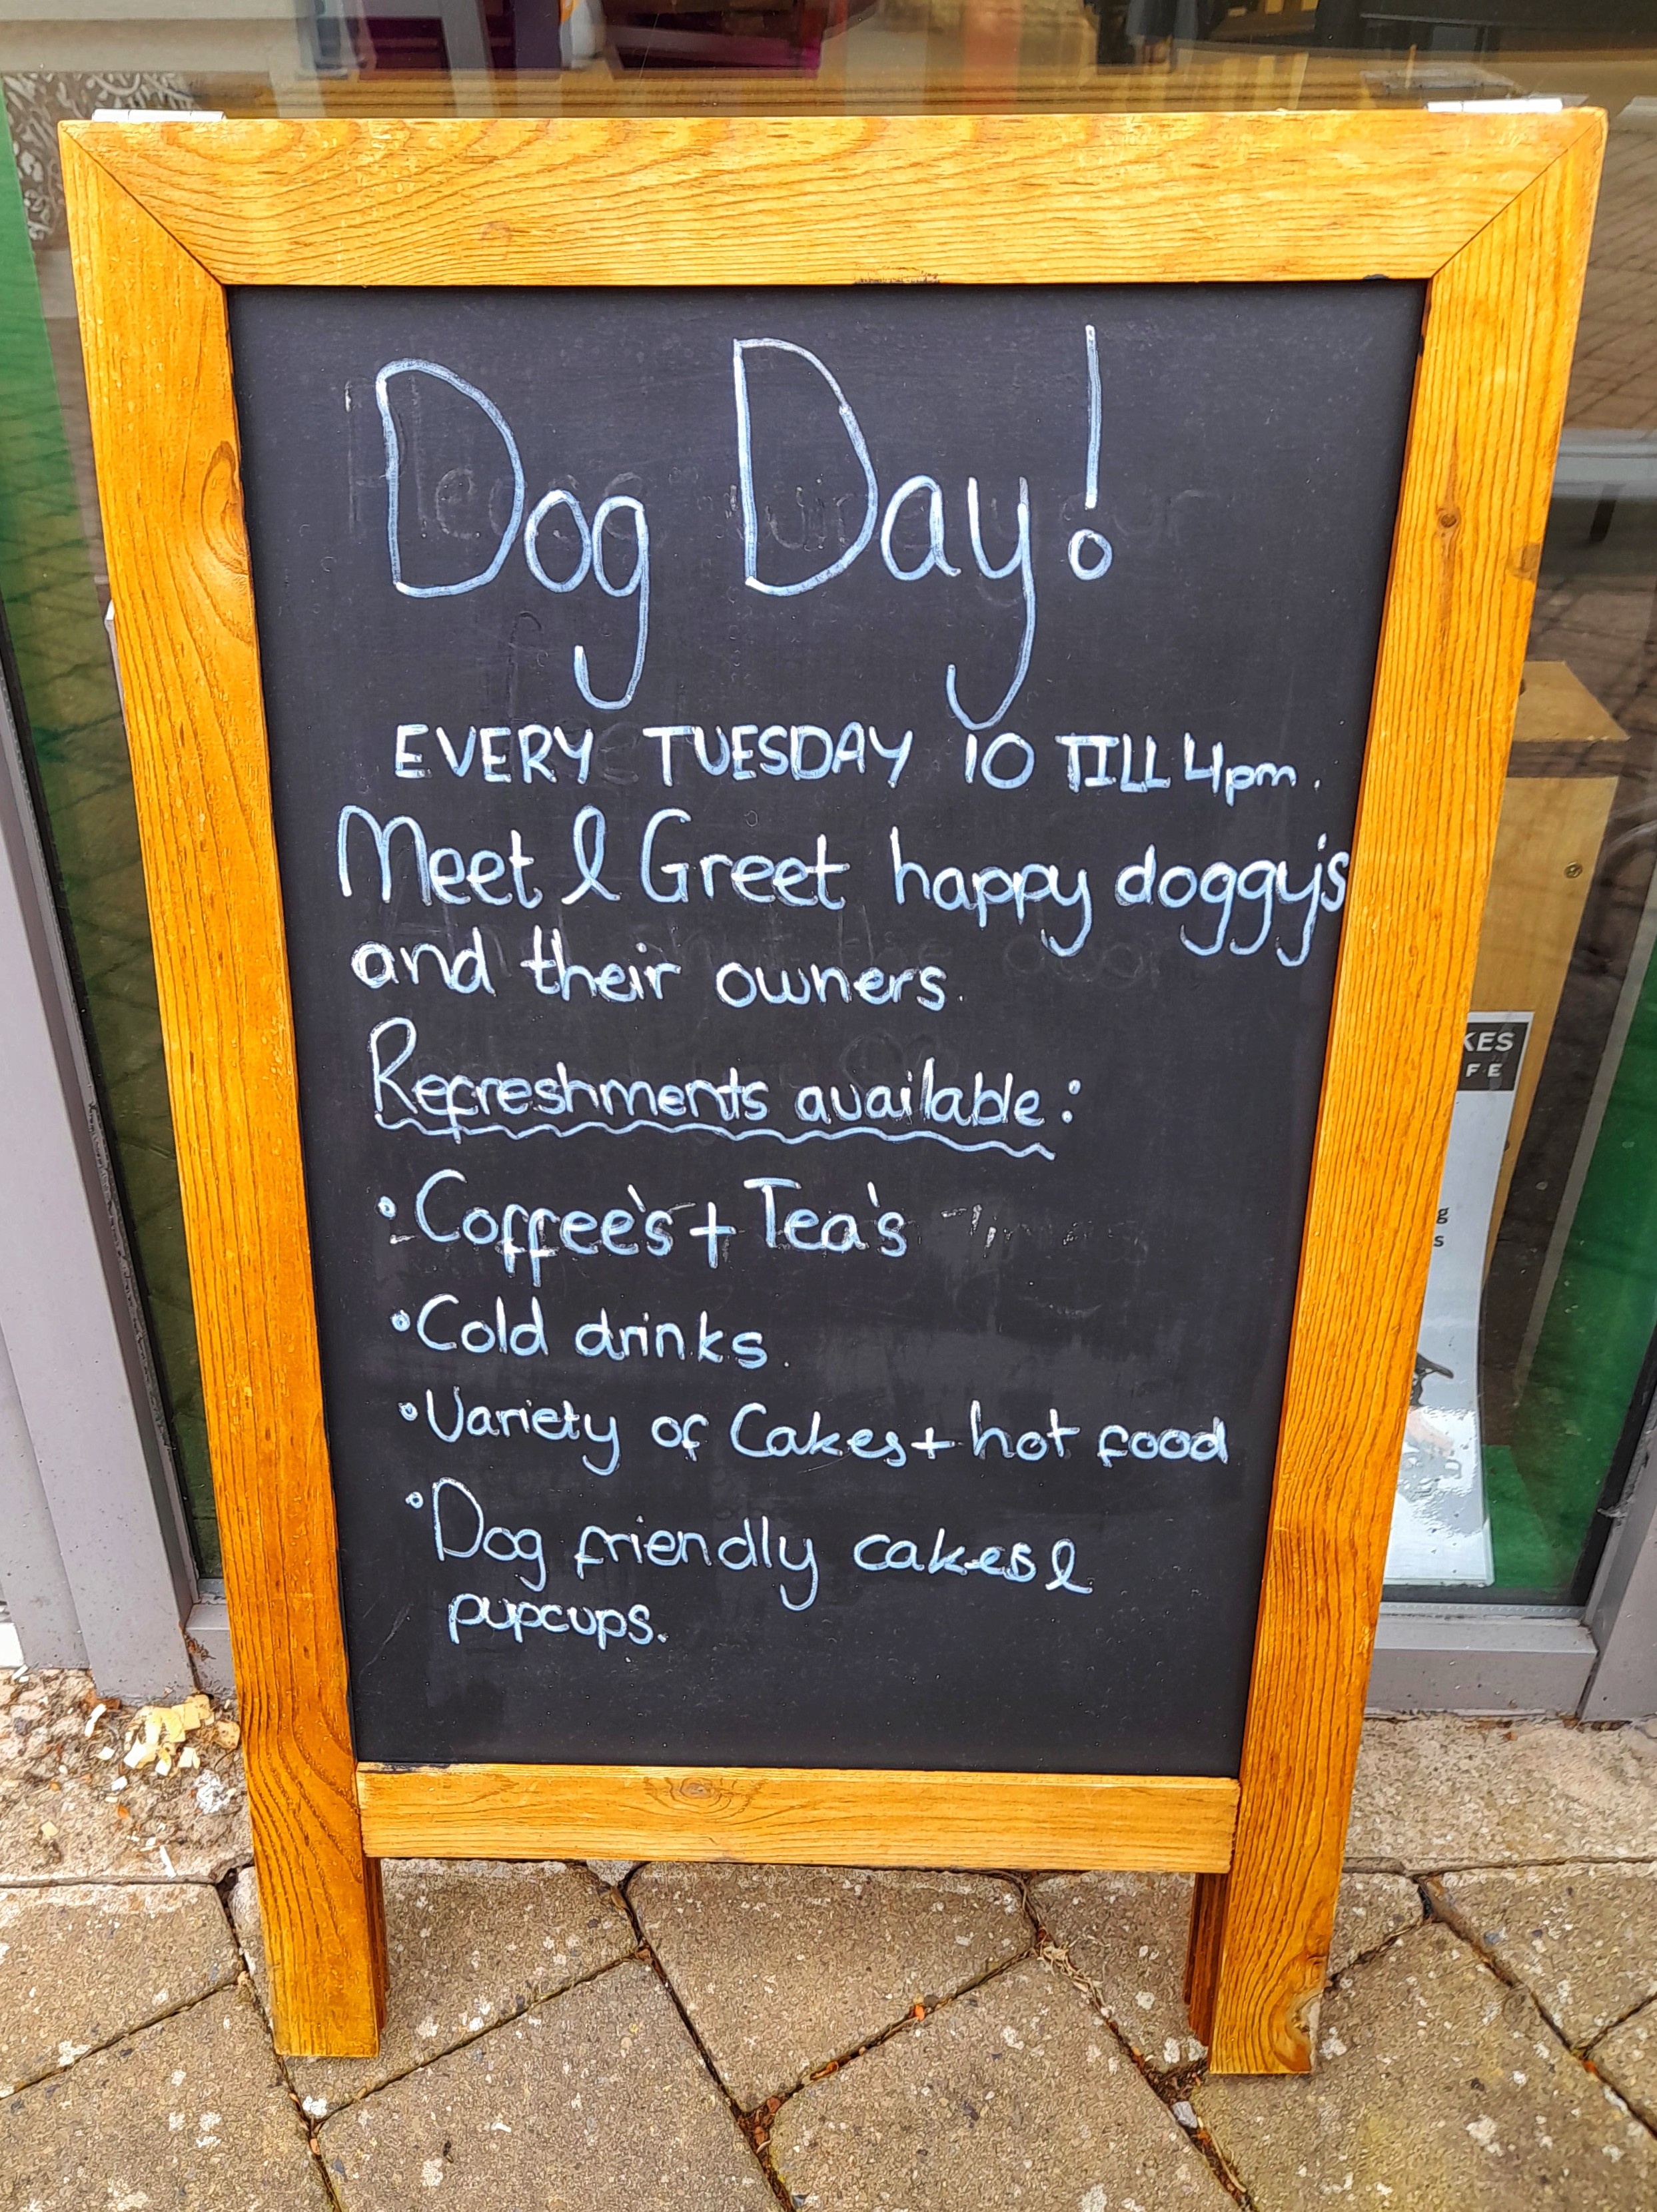 Dog Day!
EVERY TUESDAY 10 TILL 4pm.
Meet & Greet happy doggy's
and their owners.
Refreshments available:
• Coffee's + Tea's
• Cold drinks.
• Variety of Cakes + hot food
• Dog friendly cakes &
pupcups.
KES
FE
g
s